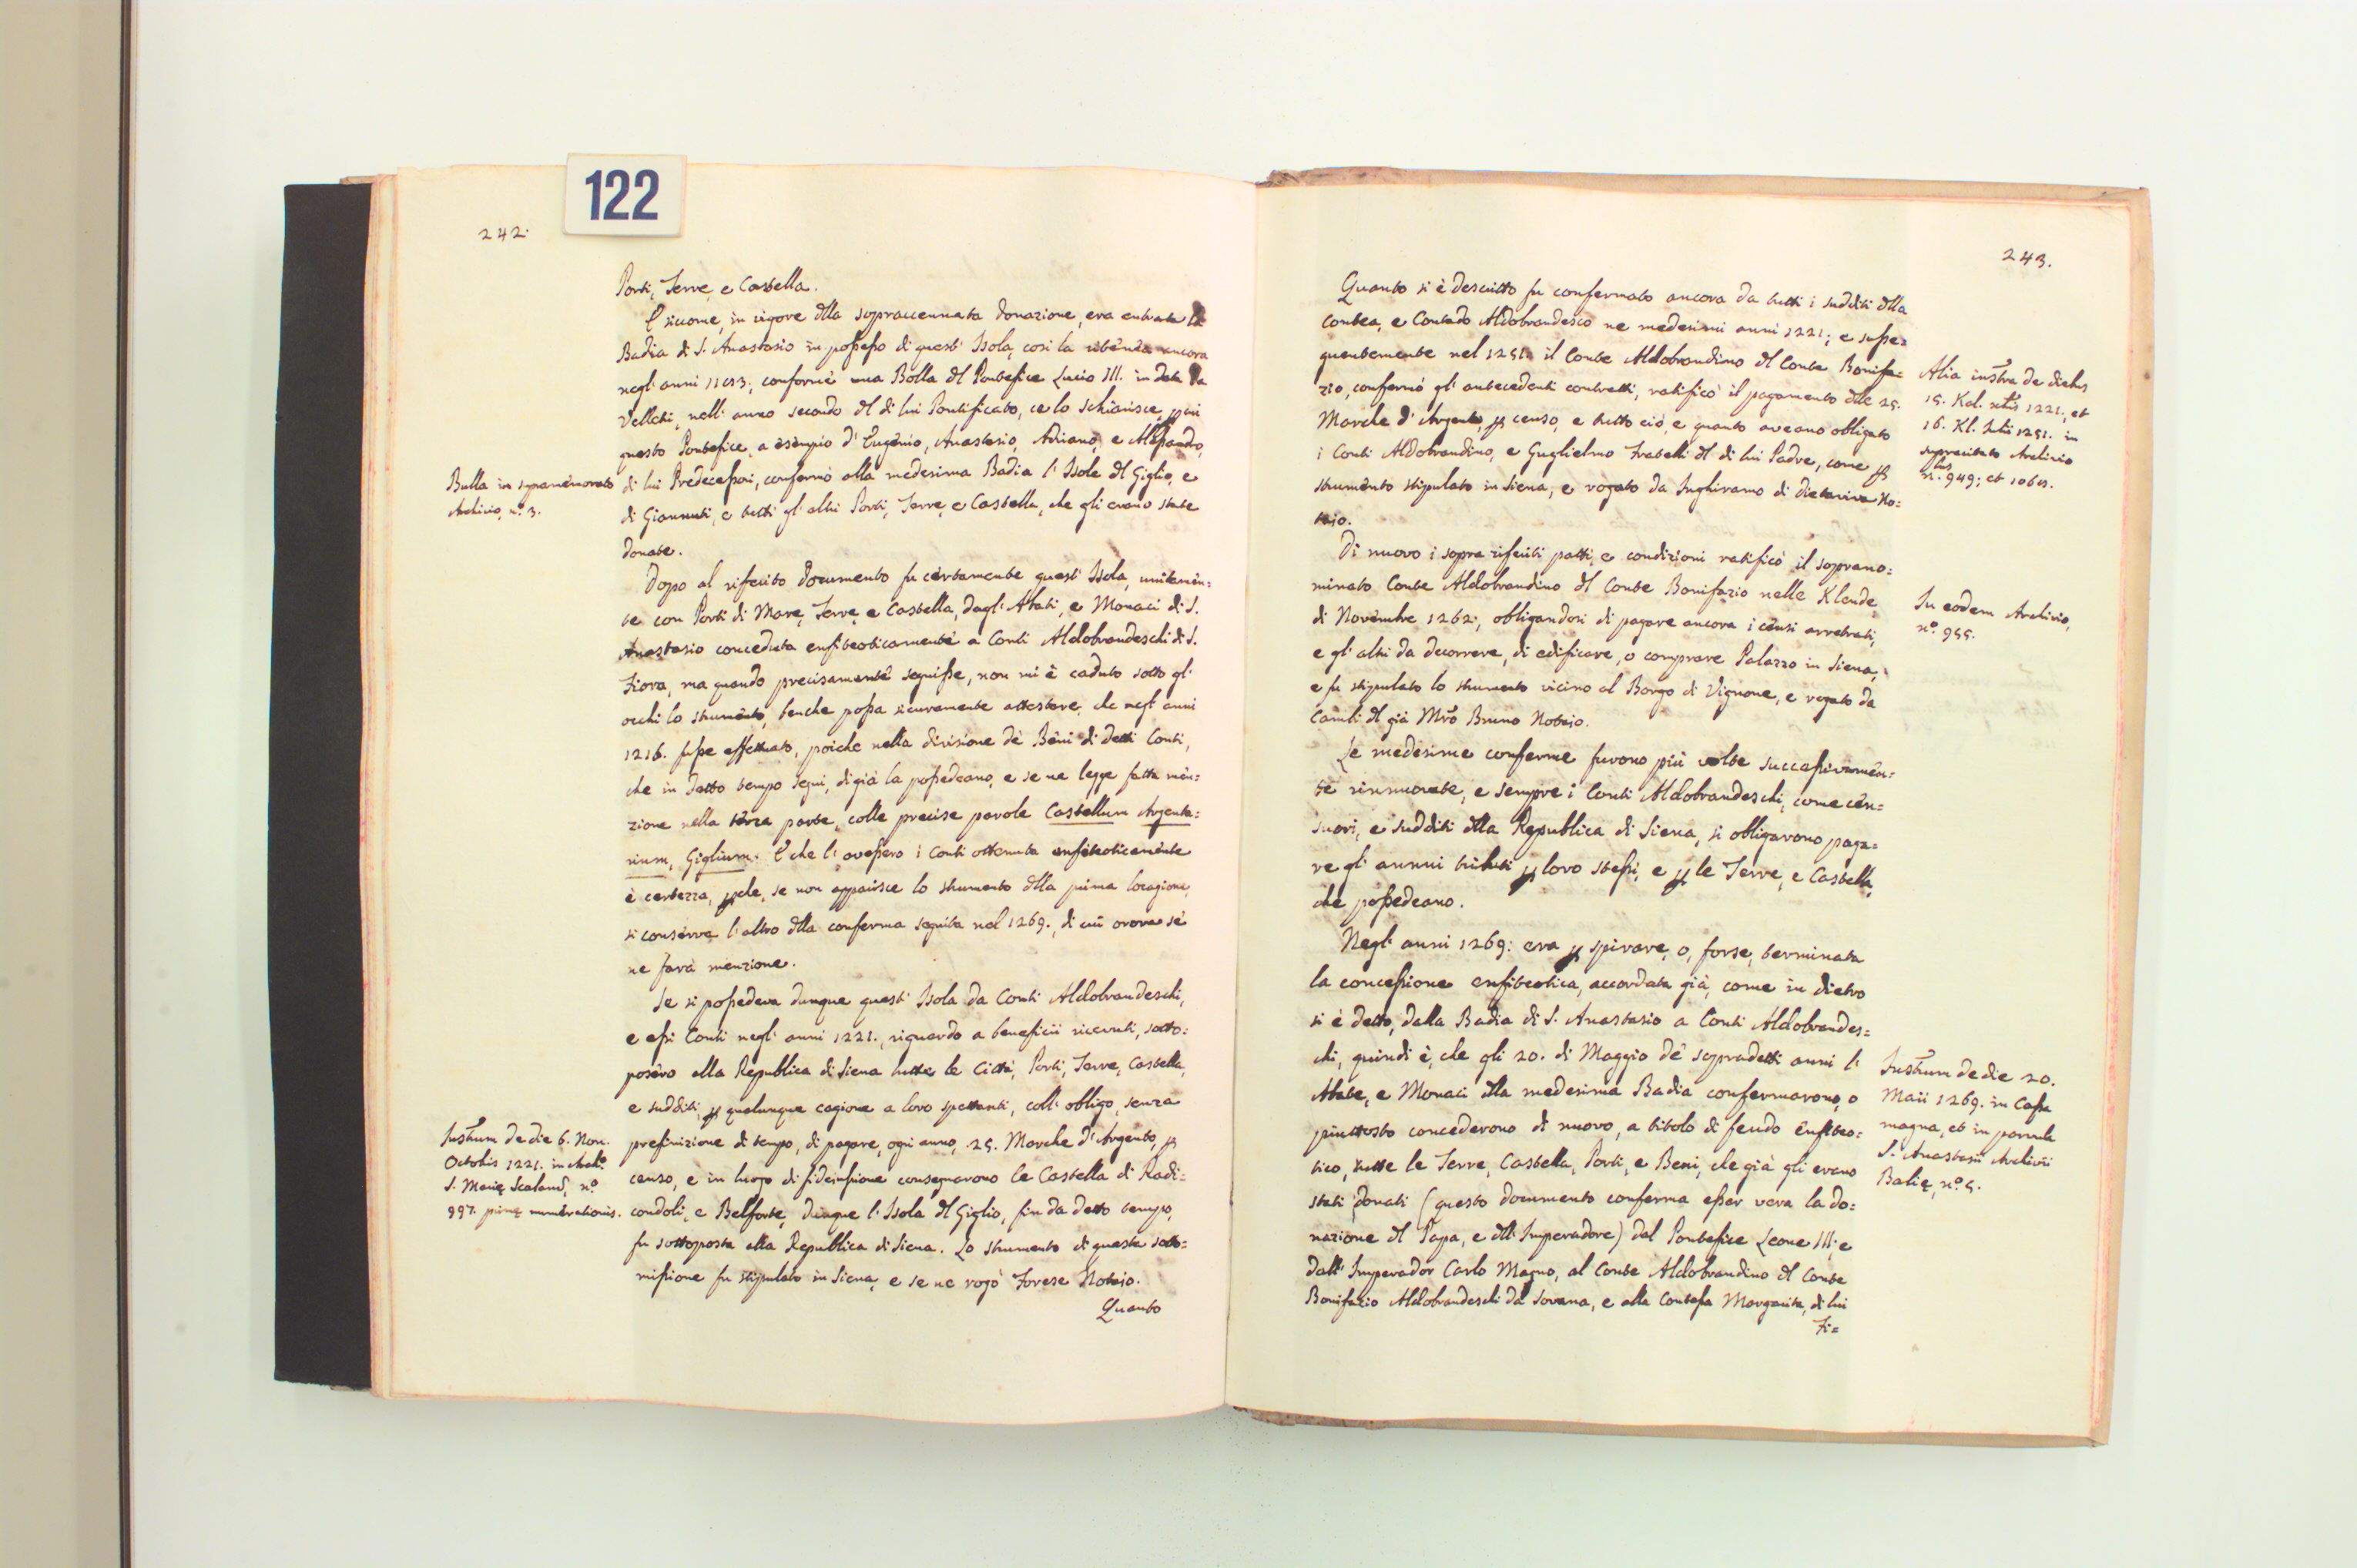 122
242.
Porti, Terre, e Castella.
E siccome, in vigore dlla sopraccennata donazione, era entrata la
Badia di S. Anastasio in possesso di quest' Isola, così la riteneva ancora
negl' anni 1183, conforme una Bolla dl Pontefice Lucio III. in data da
Velletri, nell' anno secondo dl di lui Pontificato, ce lo schiarisce, p cui
questo Pontefice, a esempio d' Eugenio, Anastasio, Adriano, e Alessandro,
di lui Predecessori, confermò alla medesima Badia l' Isole dl Giglio, e
di Giannuti, e tutti gl' altri Porti, Terre, e Castella, che gli erano state
donate.
Bulla in supramemorato
Archivio, nº. 3.
Dopo al riferito Documento fu certamente quest' Isola, unitamen=
te con Porti di Mare, Terre, e Castella, dagl' Abati, e Monaci di S.
Anastasio conceduta enfiteoticamente a Conti Aldobrandeschi di S.
Fiora, ma quando precisamente seguisse, non mi è caduto sotto gl'
occhi lo strumento, benche possa sicuramente attestare, che negl' anni
1216. fusse effettuato, poiche nella divisione de Beni di detti Conti,
che in detto tempo seguì, di già la possedeano, e se ne legge fatta men=
zione nella terza parte, colle precise parole Castellum Argenta=
rium, Giglium. E che l' avessero i Conti ottenuta enfiteoticamente
è certezza, pche, se non apparisce lo strumento dlla prima locazione,
si conserva l' altro dlla conferma seguita nel 1269., di cui orora se
ne farà menzione.
Se si possedeva dunque quest' Isola da Conti Aldobrandeschi,
e essi Conti negl' anni 1221., riguardo a beneficii ricevuti, sotto=
posero alla Republica di Siena tutte le Città, Porti, Terre, Castella,
e sudditi, p qualunque cagione a loro spettanti, coll' obligo, senza
prefinizione di tempo, di pagare, ogni anno, 25. Marche d' Argento, p
censo, e in luogo di fideiussione consegnarono le Castella di Radi=
condoli, e Belforte, dunque l' Isola dl Giglio, fin da detto tempo,
fu sottoposta alla Republica di Siena. Lo strumento di questa sotto=
missione fu stipulato in Siena, e se ne rogò Forese Notaio.
Quanto
Instrum de die 6. Non.
Octobris 1221. in Arch.º
S. Marię Scalarū, nº.
997. primę numerationis.
243.
Quanto si è descritto fu confermato ancora da tutti i sudditi dlla
Contea, e Contado Aldobrandesco ne medesimi anni 1221.; e susse=
quentemente nel 1251. il Conte Aldobrandino dl Conte Bonifa=
zio, confermò gl' antecedenti contratti, ratificò il pagamento dlle 25.
Marche d' Argento, p censo, e tutto ciò, e quanto aveano obligato
i Conti Aldobrandino, e Guglielmo Fratelli dl di lui Padre, come p
strumento stipulato in Siena, e rogato da Inghiramo di Dietaviva No=
taio.
Alia instra de diebus
15. Kal. 1221., et
16. Kl. Julii 1251. in
supracitato Archivio
n.is 949; et 1060.
Di nuovo i sopra riferiti patti, e condizioni ratificò il soprano=
minato Conte Aldobrandino dl Conte Bonifazio nelle Klende
di Novembre 1262., obligandosi di pagare ancora i censi arretrati,
e gl' altri da decorrere, di edificare, o comprare Palazzo in Siena,
e fu stipulato lo strumento vicino al Borgo di Vignone, e rogato da
dl già Mrō Bruno Notaio.
In eodem Archivio,
nº. 955.
Le medesime conferme furono più volte successivamen=
te rinnovate, e sempre i Conti Aldobrandeschi, come cen=
suari, e sudditi dlla Republica di Siena, si obligarono paga=
re gl' annui tributi p loro stessi, e p le Terre, e Castella,
che possedeano.
Negl' anni 1269: era p spirare, o, forse, terminata
la concessione enfiteotica, accordata già, come in dietro
si è detto, dalla Badia di S. Anastasio a Conti Aldobrandes=
chi, quindi è, che gli 20. di Maggio de' sopradetti anni l'
Abate, e Monaci dlla medesima Badia confermarono, o
piuttosto concederono di nuovo, a titolo di feudo enfiteo=
tico, tutte le Terre, Castella, Porti, e Beni, che già gli erano
stati donati (questo documento conferma esser vera la do=
nazione dl Papa, e dll' Imperadore) dal Pontefice Leone III, e
dall' Imperador Carlo Magno, al Conte Aldobrandino dl Conte
Bonifazio Aldobrandeschi da Sovana, e alla Contessa Margarita, di lui
Fi=
Instrum de die 20.
Maii 1269. in Cassa
magna, et in parvula
S. Anastasii Archivii
Balię, nº. 5.